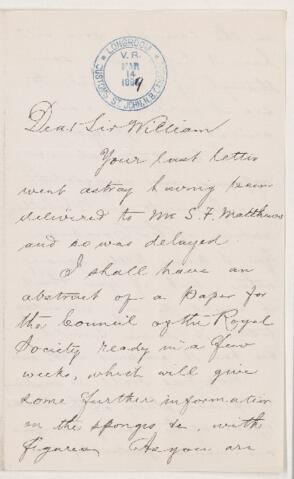 LONGROOM
CUSTOMS ST. JOHN, N.B.
V. R.
MAR
14
1889
Dear Sir William
Your last letter
went astray having been
delivered to Mr S. F. Matthews
and so was delayed
I shall have an
abstract of a paper for
the Council of the Royal
Society ready in a few
weeks, which will give
some further information
on the sponges &c, with
figures. As you are